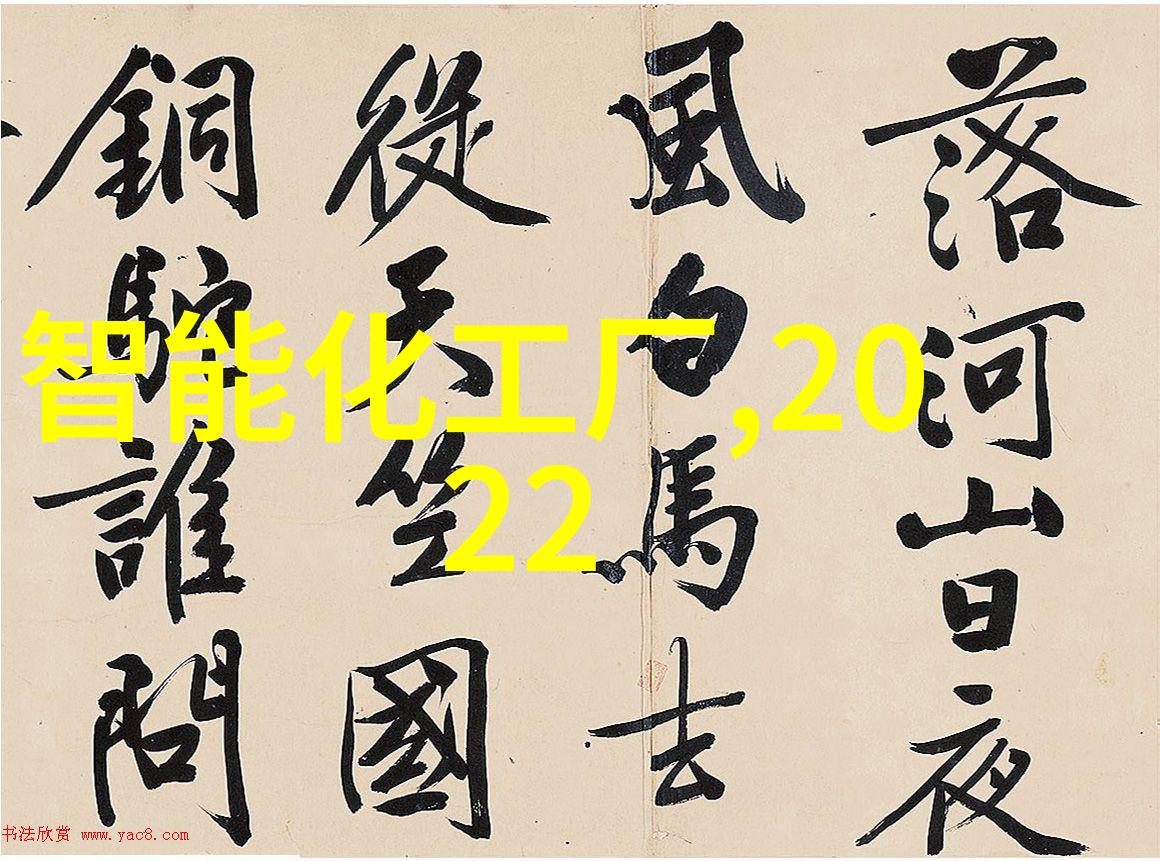 落河山日夜
風白馬去
從天竺國
銅駝誰問
智能化工厂,20
22
书法欣赏 www.yac8.com